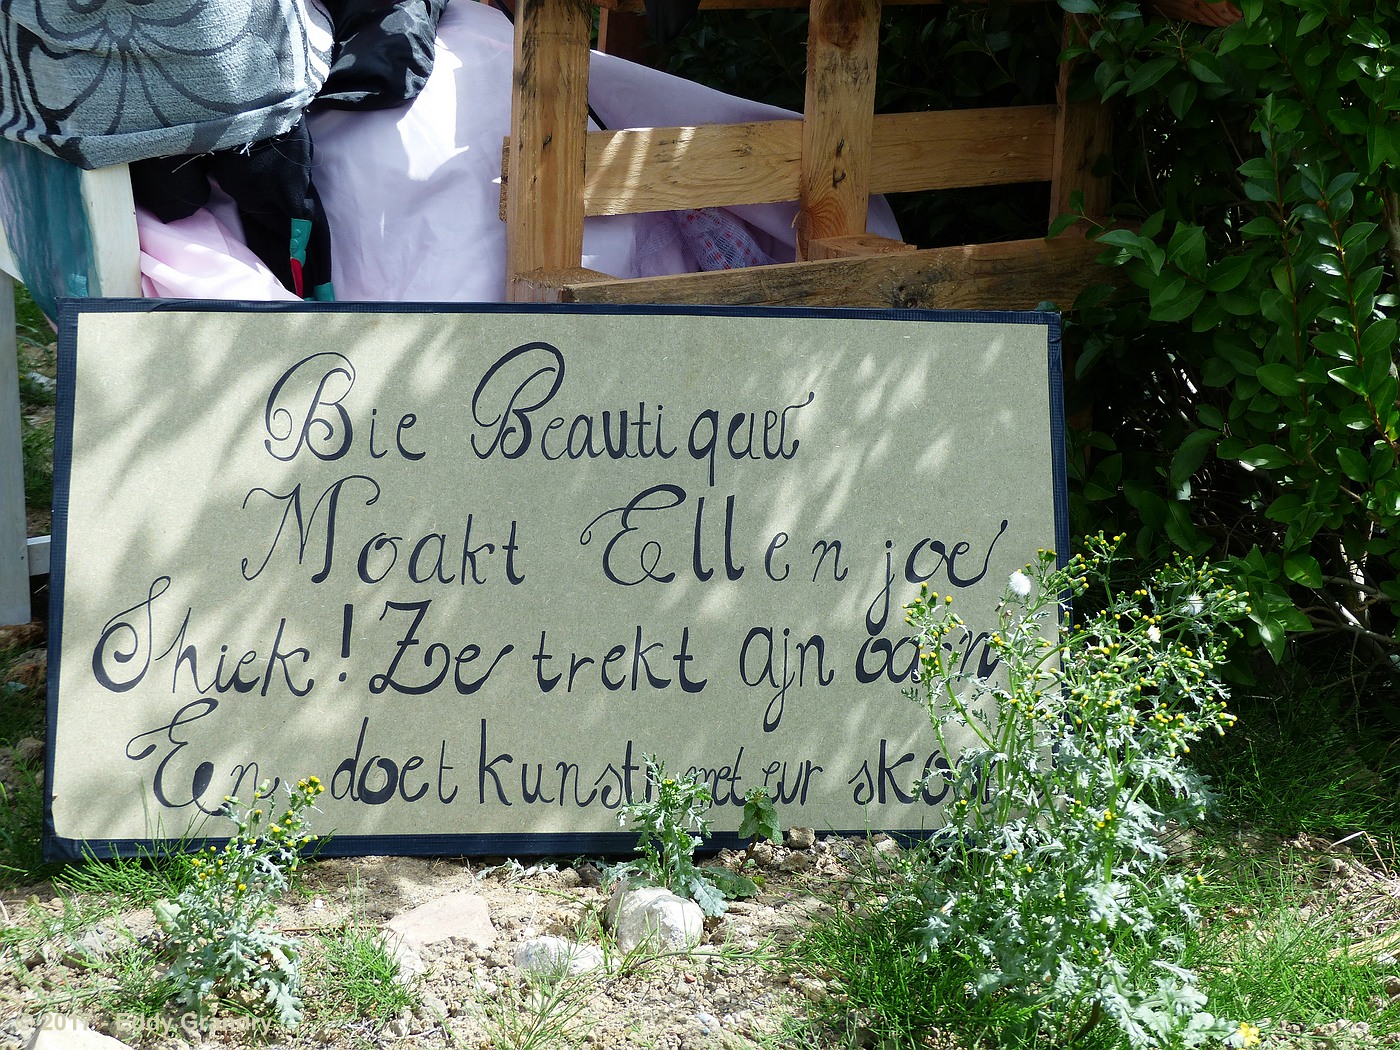 Bie Beautiquer
Moakt Ellen joe
Shiek! Ze trekt ajn oarn
En doet kunstn met eur